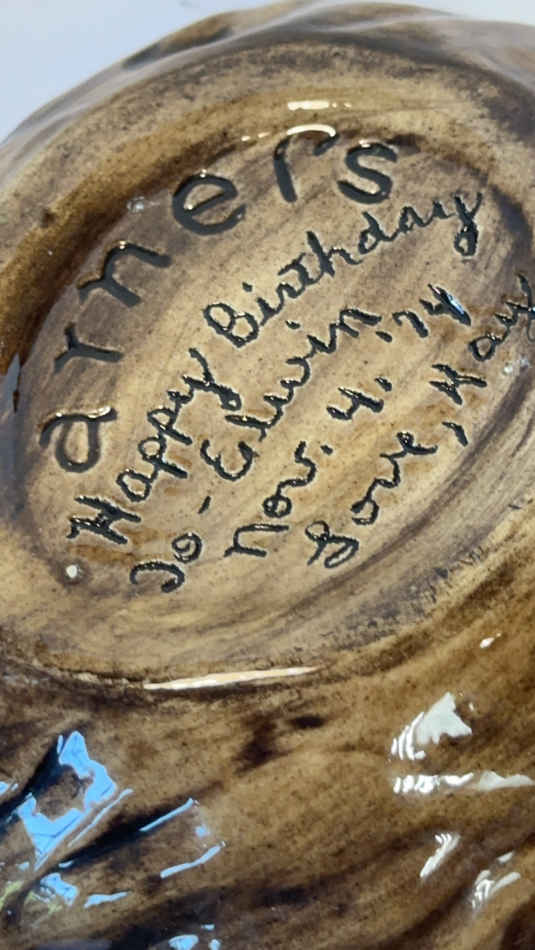 arners
Happy Birthday
To - Elwin
Nov. 4. '74
Love, Kay